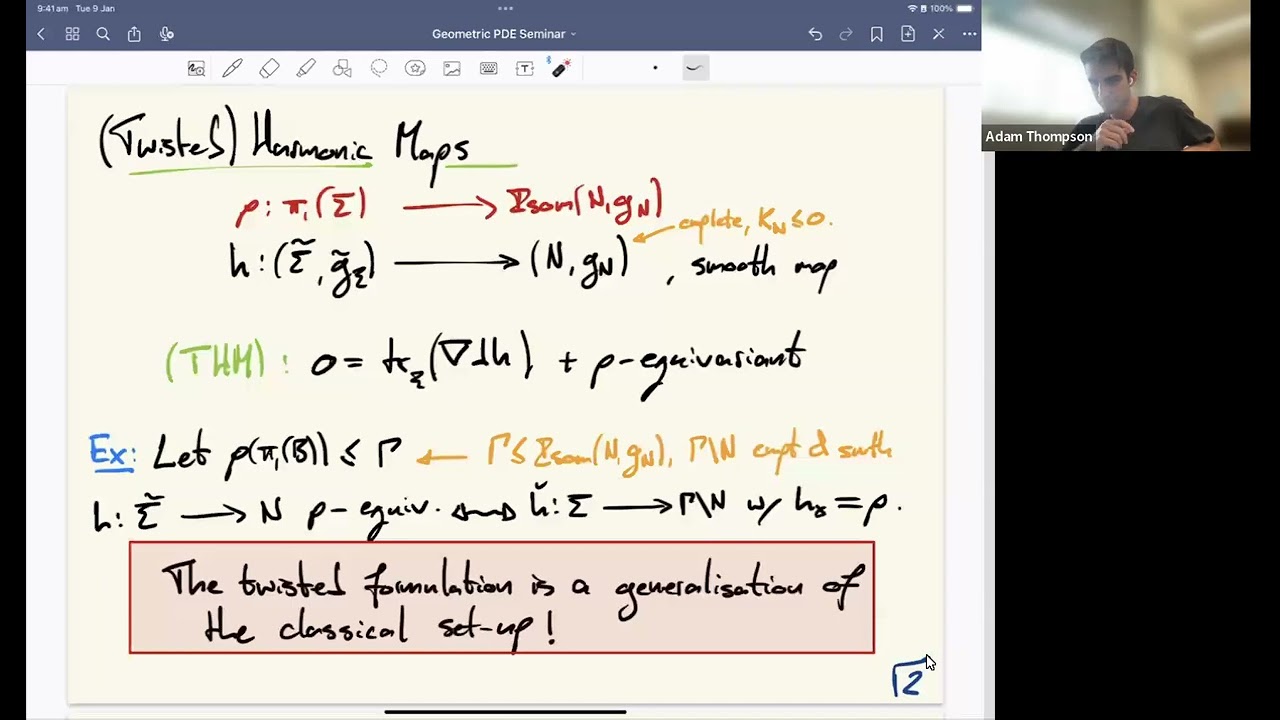 9:41am Tue 9 Jan
100%
Geometric PDE Seminar
(Twisted) Harmonic Maps
ρ: π₁(Σ) → Isom(N, g_N)
complete, K_N ≤ 0.
h: (Σ̃, g̃_Σ) → (N, g_N), smooth map
(THM): 0 = tr_Σ(∇dh) + ρ-equivariant
Ex: Let ρ(π₁(B)) ≤ Γ ← Γ ≤ Isom(N, g_N), Γ\N cmpt d smth
h: Σ̃ → N ρ-equiv. ⟷ ȟ: Σ → Γ\N w/ h_* = ρ.
The twisted formulation is a generalisation of
the classical set-up!
2
Adam Thompson